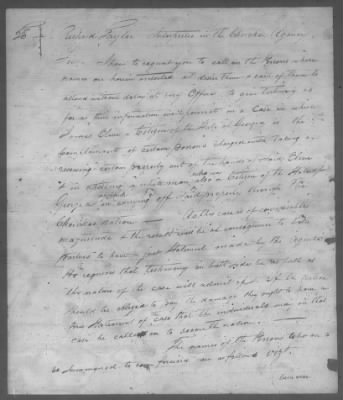 Richard Taylor Interpreter in the Cherokee Agency
Sir, I have to request you to call on the Persons whose
names are herein inserted & desire them & each of them to
attend without delay at my office to give testimony as
far as their information will permit in a Case in which
a Citizen of the State of Georgia is the
Complainant of certain persons charged with taking or
receiving certain property out of the hands of said
& a white man who is also a Citizen of the State of
Georgia in carrying off said property through the
Cherokee Nation — As the case is of considerable
magnitude & the result will be of consequence to both
Parties to have a just Statement made by the Agent
He requires that testimony on both sides be as full as
the nature of the case will admit of. If the nation
should be obliged to pay the damage they ought to have a
Statement of Case that the individuals may in that
case be called on to the nation —
The names of the Persons to be
summoned to come forward are as follows viz.